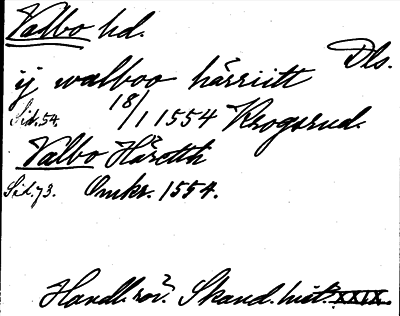 Valbo hd.
Dls.
ij walboo härriitt
Sid. 54. 18/1 1554 Krogsrud.
Valbo Häretth
Sid. 73. Omkr. 1554.
Handl. rör. Skand. hist. XXIX.